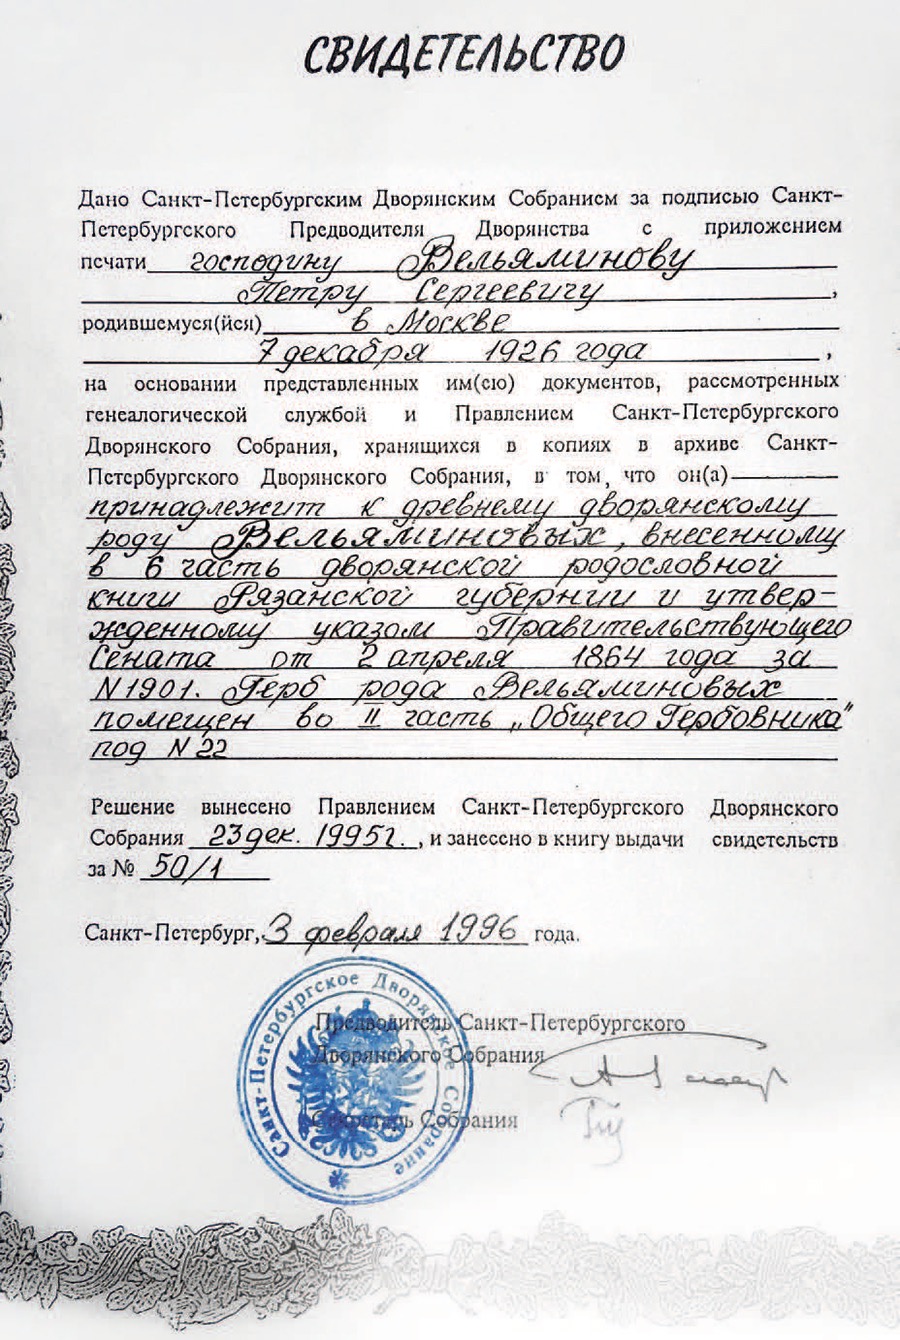 СВИДЕТЕЛЬСТВО
Дано Санкт-Петербургским Дворянским Собранием за подписью Санкт-
Петербургского Предводителя Дворянства с приложением
печати господину Вельяминову
Петру Сергеевичу,
родившемуся(йся) в Москве
7 декабря 1926 года,
на основании представленных им(ею) документов, рассмотренных
генеалогической службой и Правлением Санкт-Петербургского
Дворянского Собрания, хранящихся в копиях в архиве Санкт-
Петербургского Дворянского Собрания, в том, что он(а)
принадлежит к древнему дворянскому
роду Вельяминовых, внесенному
в 6 часть дворянской родословной
книги Рязанской губернии и утвер-
жденному указом Правительствующего
Сената от 2 апреля 1864 года за
N1901. Герб рода Вельяминовых
помещен во II часть „Общего Гербовника"
под N 22
Решение вынесено Правлением Санкт-Петербургского Дворянского
Собрания 23 дек. 1995г., и занесено в книгу выдачи свидетельств
за № 50/1
Санкт-Петербург, 3 февраля 1996 года.
Предводитель Санкт-Петербургского
Дворянского Собрания
Секретарь Собрания
Санкт-Петербургское Дворянское Собрание